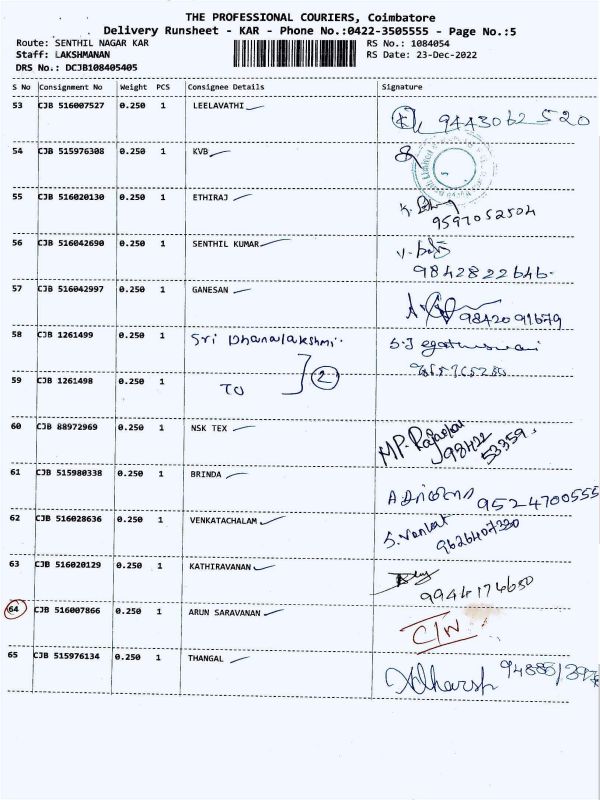 THE PROFESSIONAL COURIERS, Coimbatore
Delivery Runsheet - KAR - Phone No.:0422-3505555 - Page No.:5
Route: SENTHIL NAGAR KAR RS No.: 1084054
Staff: LAKSHMANAN RS Date: 23-Dec-2022
DRS No.: DCJB108405405
S No Consignment No Weight PCS Consignee Details Signature
53 CJB 516007527 0.250 1 LEELAVATHI 9443062520
54 CJB 515976308 0.250 1 KVB
55 CJB 516020130 0.250 1 ETHIRAJ 9597052504
56 CJB 516042690 0.250 1 SENTHIL KUMAR 9842822646
57 CJB 516042997 0.250 1 GANESAN 9842091679
58 CJB 1261499 0.250 1 Sri Dhanalakshmi
59 CJB 1261498 0.250 1 TO 2
60 CJB 88972969 0.250 1 NSK TEX MP. 98422
53359
61 CJB 515980338 0.250 1 BRINDA 9524700555
62 CJB 516028636 0.250 1 VENKATACHALAM S. Venkat
9626407330
63 CJB 516020129 0.250 1 KATHIRAVANAN 9944174650
64 CJB 516007866 0.250 1 ARUN SARAVANAN C/W
65 CJB 515976134 0.250 1 THANGAL